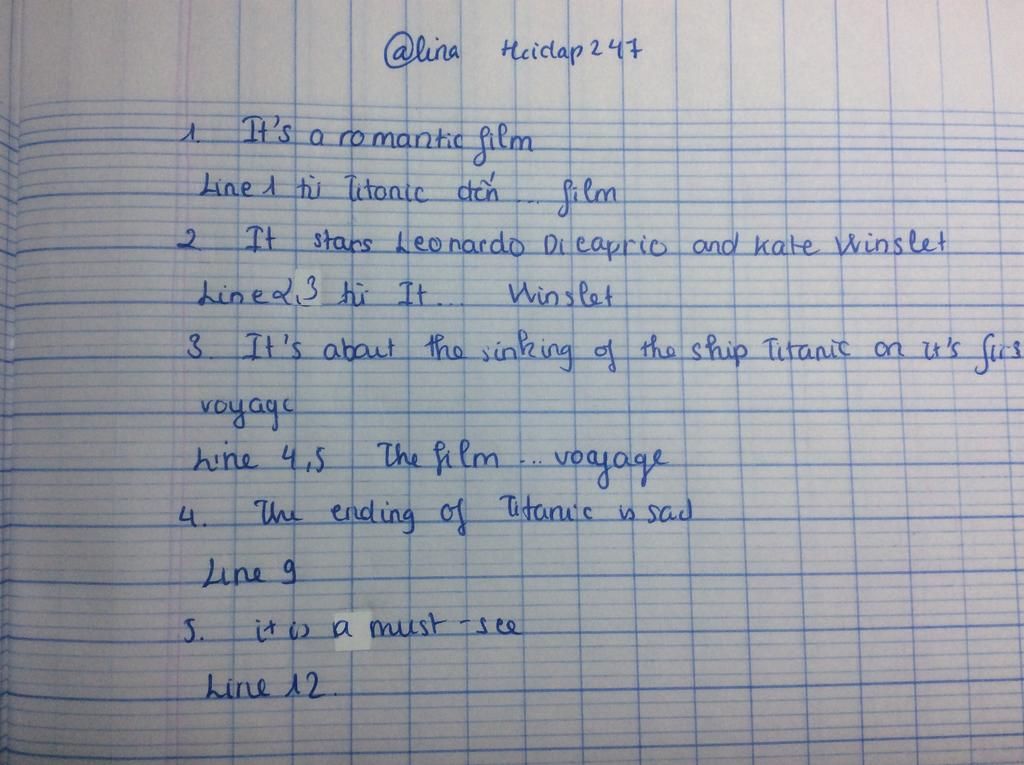 @lina Hcidap247
1. It's a romantic film
Line 1 từ Titanic đến ... film
2 It stars Leonardo Dicaprio and Kate Winslet
Line 2,3 từ It ... Winslet
3. It's about the sinking of the ship Titanic on it's firs
voyage
Line 4,5 The film ... voayage
4. The ending of Titanic is sad
Line 9
5. it is a must-see
Line 12.